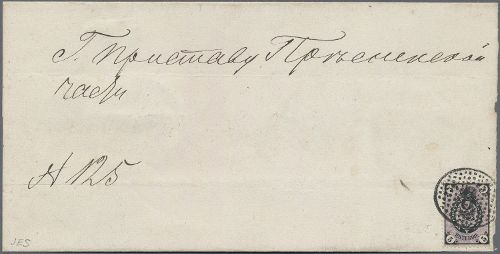 Г. Приставу Пресненской
части
N 125
JES
5 5